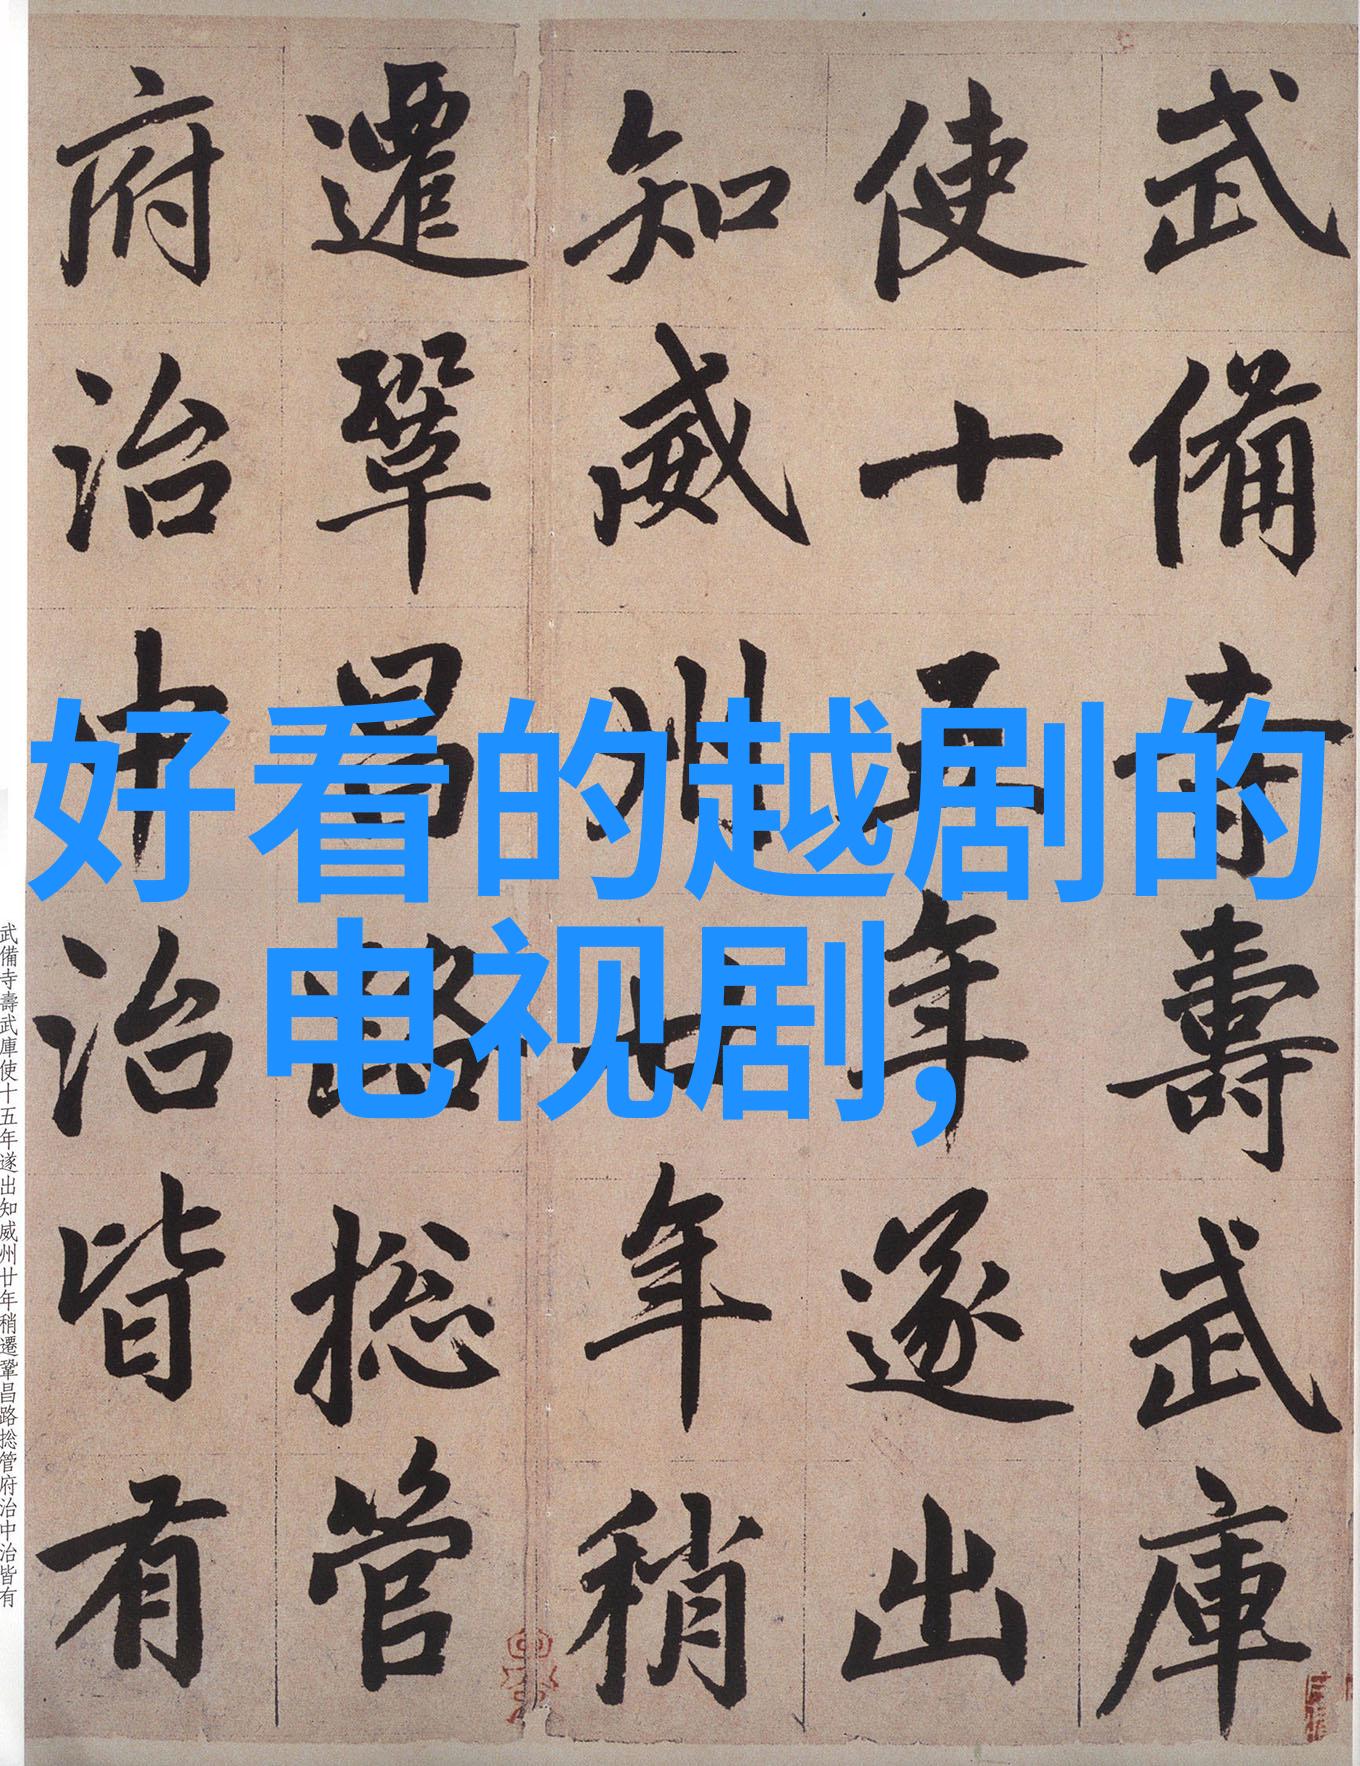 武備寺壽武庫
使十五年遂出
知威州廿年稍
遷鞏昌路捴管
府治中治皆有
好看的越剧的
电视剧，
武備寺壽武庫使十五年遂出知威州廿年稍遷鞏昌路捴管府治中治皆有